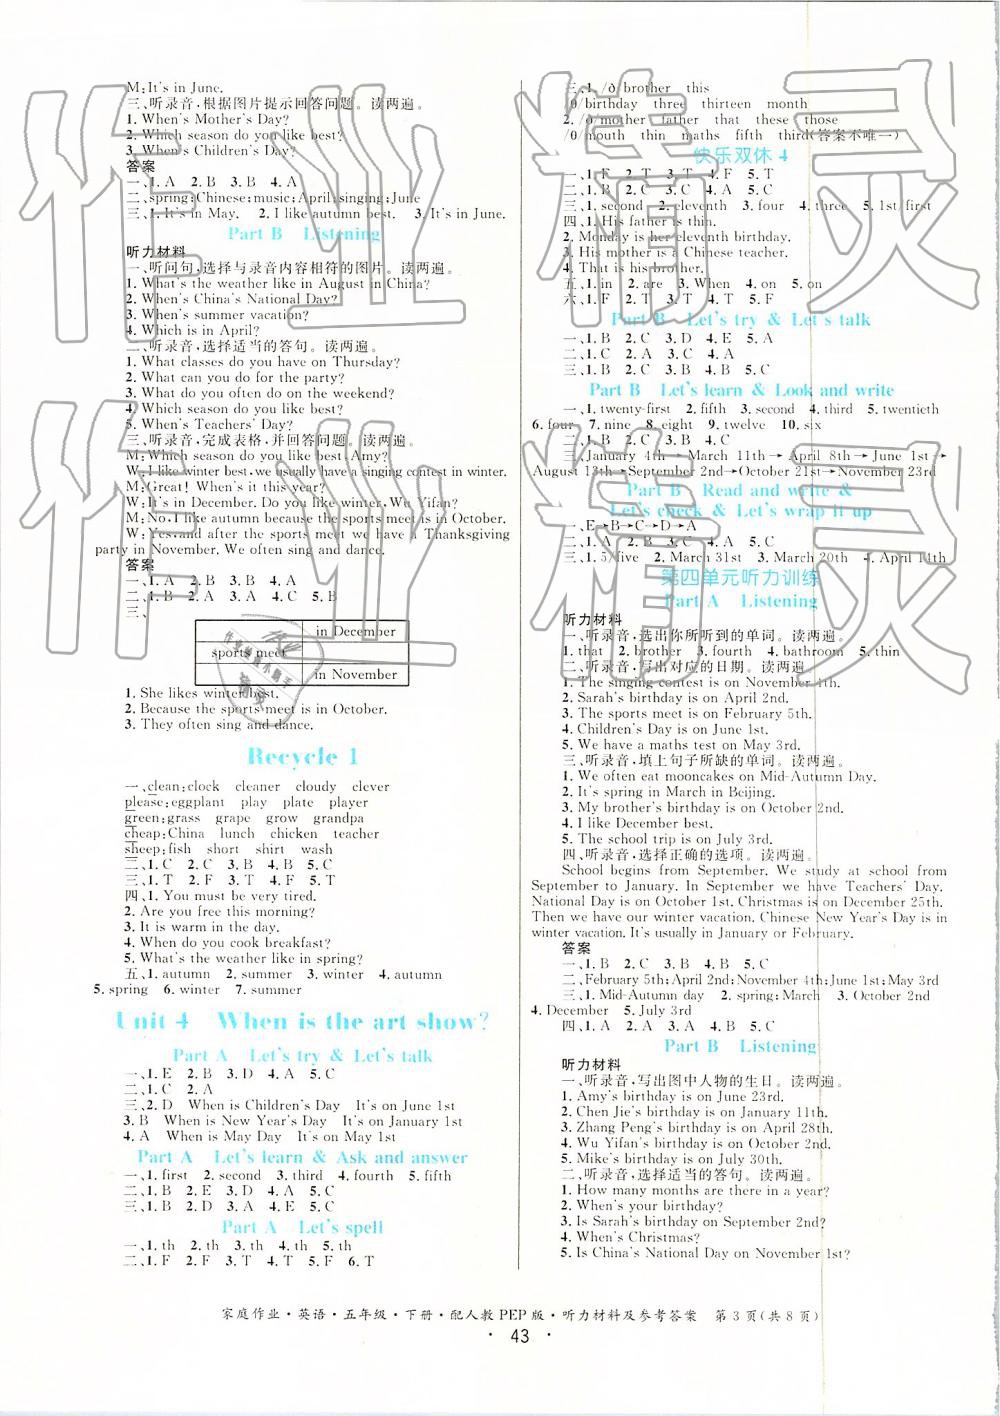 M:It's in June.
三、听录音,根据图片提示回答问题。读两遍。
1. When's Mother's Day?
2. Which season do you like best?
3. When's Children's Day?
答案
一、1. A  2. B  3. B  4. A
二、spring;Chinese;music;April;singing;June
三、1. It's in May.  2. I like autumn best.  3. It's in June.
Part B  Listening
听力材料
一、听问句,选择与录音内容相符的图片。读两遍。
1. What's the weather like in August in China?
2. When's China's National Day?
3. When's summer vacation?
4. Which is in April?
二、听录音,选择适当的答句。读两遍。
1. What classes do you have on Thursday?
2. What can you do for the party?
3. What do you often do on the weekend?
4. Which season do you like best?
5. When's Teachers' Day?
三、听录音,完成表格,并回答问题。读两遍。
M:Which season do you like best,Amy?
W:I like winter best,we usually have a singing contest in winter.
M:Great! When's it this year?
W:It's in December. Do you like winter,Wu Yifan?
M:No,I like autumn because the sports meet is in October.
W:Yes,and after the sports meet we have a Thanksgiving
party in November. We often sing and dance.
答案
一、1. A  2. B  3. B  4. B
二、1. B  2. A  3. A  4. C  5. B
三、
in December
sports meet
in November
1. She likes winter best.
2. Because the sports meet is in October.
3. They often sing and dance.
Recycle 1
一、clean:clock  cleaner  cloudy  clever
please:eggplant  play  plate  player
green:grass  grape  grow  grandpa
cheap:China  lunch  chicken  teacher
sheep:fish  short  shirt  wash
二、1. C  2. C  3. B  4. B  5. C
三、1. T  2. F  3. F  4. T  5. F
四、1. You must be very tired.
2. Are you free this morning?
3. It is warm in the day.
4. When do you cook breakfast?
5. What's the weather like in spring?
五、1. autumn  2. summer  3. winter  4. autumn
5. spring  6. winter  7. summer
Unit 4  When is the art show?
Part A  Let's try & Let's talk
一、1. E  2. B  3. D  4. A  5. C
二、1. C  2. A
三、2. D  When is Children's Day  It's on June 1st
3. B  When is New Year's Day  It's on January 1st
4. A  When is May Day  It's on May 1st
Part A  Let's learn & Ask and answer
一、1. first  2. second  3. third  4. fourth  5. fifth
二、1. B  2. E  3. D  4. A  5. C
三、1. B  2. D  3. A  4. E  5. C
Part A  Let's spell
一、1. th  2. th  3. th  4. th  5. th
二、1. F  2. F  3. T  4. T  5. F  6. T
三、1. /ð/brother  this
/θ/birthday  three  thirteen  month
2. /ð/mother  father  that  these  those
/θ/mouth  thin  maths  fifth  third(答案不唯一)
快乐双休 4
一、1. F  2. T  3. T  4. F  5. T
二、1. B  2. C  3. C  4. A  5. B
三、1. second  2. eleventh  3. four  4. three  5. 1st/first
四、1. His father is thin.
2. Monday is her eleventh birthday.
3. His mother is a Chinese teacher.
4. That is his brother.
五、1. in  2. are  3. When  4. on  5. on
六、1. F  2. T  3. T  4. T  5. F
Part B  Let's try & Let's talk
一、1. B  2. C  3. D  4. E  5. A
二、1. C  2. A  3. C  4. B
三、1. B  2. A  3. C  4. C  5. A
Part B  Let's learn & Look and write
一、1. twenty-first  2. fifth  3. second  4. third  5. twentieth
6. four  7. nine  8. eight  9. twelve  10. six
二、1. B  2. A  3. B  4. C
三、January 4th→March 11th→April 8th→June 1st→
August 13th→September 2nd→October 21st→November 23rd
Part B  Read and write &
Let's check & Let's wrap it up
一、E→B→C→D→A
三、1. 5/five  2. March 31st  3. March 20th  4. April 11th
第四单元听力训练
Part A  Listening
听力材料
一、听录音,选出你所听到的单词。读两遍。
1. that  2. brother  3. fourth  4. bathroom  5. thin
二、听录音,写出对应的日期。读两遍。
1. The singing contest is on November 4th.
2. Sarah's birthday is on April 2nd.
3. The sports meet is on February 5th.
4. Children's Day is on June 1st.
5. We have a maths test on May 3rd.
三、听录音,填上句子所缺的单词。读两遍。
1. We often eat mooncakes on Mid-Autumn Day.
2. It's spring in March in Beijing.
3. My brother's birthday is on October 2nd.
4. I like December best.
5. The school trip is on July 3rd.
四、听录音,选择正确的选项。读两遍。
School begins from September. We study at school from
September to January. In September we have Teachers' Day.
National Day is on October 1st. Christmas is on December 25th.
Then we have our winter vacation. Chinese New Year's Day is in
winter vacation. It's usually in January or February.
答案
一、1. B  2. C  3. A  4. C  5. B
二、February 5th;April 2nd;November 4th;June 1st;May 3rd
三、1. Mid-Autumn day  2. spring;March  3. October 2nd
4. December  5. July 3rd
四、1. A  2. A  3. B  4. A  5. C
Part B  Listening
听力材料
一、听录音,写出图中人物的生日。读两遍。
1. Amy's birthday is on June 23rd.
2. Chen Jie's birthday is on January 11th.
3. Zhang Peng's birthday is on April 28th.
4. Wu Yifan's birthday is on October 2nd.
5. Mike's birthday is on July 30th.
二、听录音,选择适当的答句。读两遍。
1. How many months are there in a year?
2. When's your birthday?
3. Is Sarah's birthday on September 2nd?
4. When's Christmas?
5. Is China's National Day on November 1st?
家庭作业·英语·五年级·下册·配人教 PEP 版·听力材料及参考答案  第 3 页(共 8 页)
· 43 ·
作业
精灵
作业
精灵